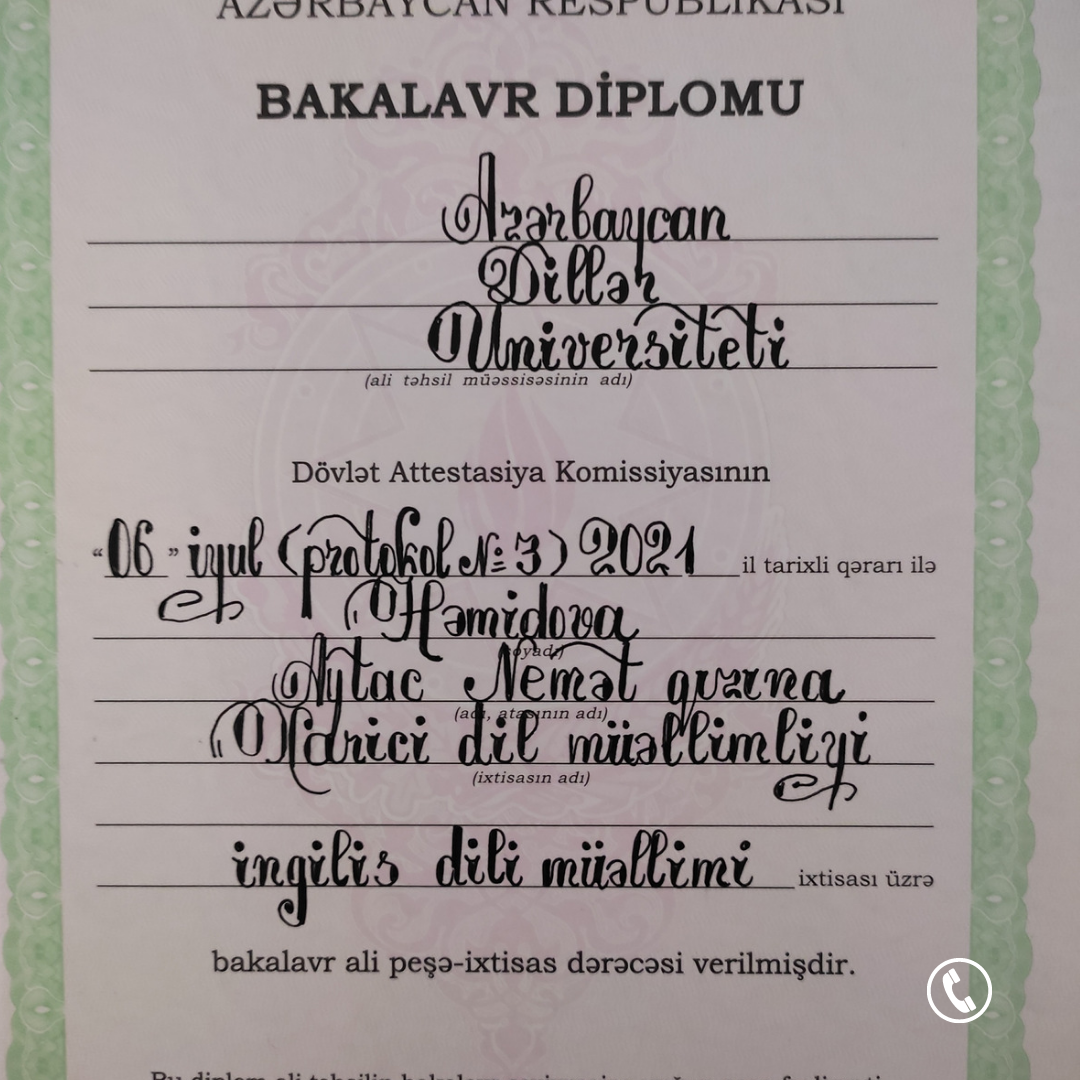 AZƏRBAYCAN RESPUBLİKASI
BAKALAVR DİPLOMU
Azərbaycan
Dillər
Universiteti
(ali təhsil müəssisəsinin adı)
Dövlət Attestasiya Komissiyasının
“06” iyul (protokol № 3) 2021 il tarixli qərarı ilə
Həmidova
(soyadı)
Aytac Nemət qızına
(adı, atasının adı)
Xarici dil müəllimliyi
(ixtisasın adı)
ingilis dili müəllimi ixtisası üzrə
bakalavr ali peşə-ixtisas dərəcəsi verilmişdir.
Bu diplom ali təhsilin bakalavr